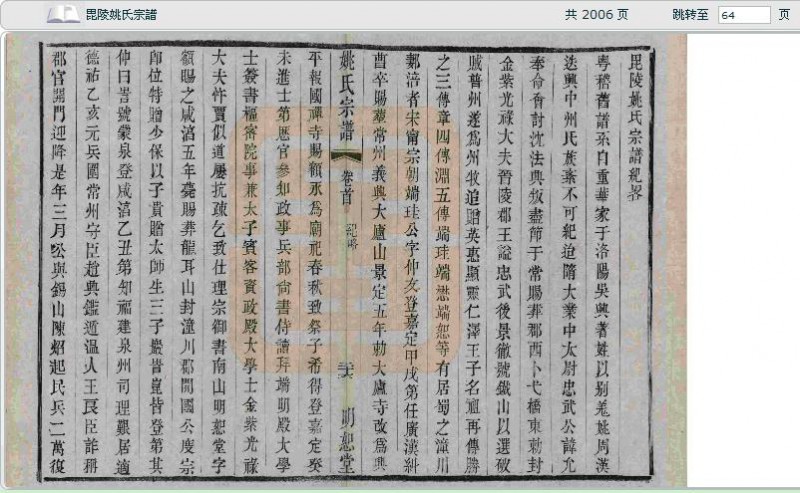 毘陵姚氏宗譜
共 2006 页
跳转至 64 页
毘陵姚氏宗譜紀畧
粤稽舊譜系自重華家于洛陽吳興著姓以別羗姚周漢
迄興中州氏族業不可紀迨隋大業中太尉忠武公諱允
奉命香討沈法興叛盡節于常賜葬郡西卜弋橋東勅封
金紫光祿大夫晉陵郡王諡忠武後景徹號鐵山以選破
賊普州遂爲州牧追贈英惠顯靈仁澤王子名 再傳勝
之三傳章四傳淵五傳端珪端懋端恕等有居蜀之潼川
鄭涪者宋甯宗朝端珪公字仲文登嘉定甲戌第任廣漢糾
曹卒賜葬常州義興大廬山景定五年勅大廬寺改爲興
姚氏宗譜
卷首
紀畧
明恕堂
平報國禪寺賜額承爲廟祀春秋致祭子希得登嘉定癸
未進士第歷官參知政事兵部尙書侍讀拜端明殿大學
士簽書樞密院事兼太子賓客資政殿大學士金紫光祿
大夫忤賈似道屢抗疎乞致仕理宗御書南山明恕堂字
額賜之咸淳五年薨賜葬龍耳山封潼川郡開國公度宗
卽位特贈少保以子貴贈太師生三子巖訔崑皆登第其
仲曰訔號蒙泉登咸淳乙丑第知福建泉州司理艱居適
德祐乙亥元兵圍常州守臣趙與鑑遁温人王良臣詐稱
郡官開門迎降是年三月公與錫山陳炤起民兵二萬復